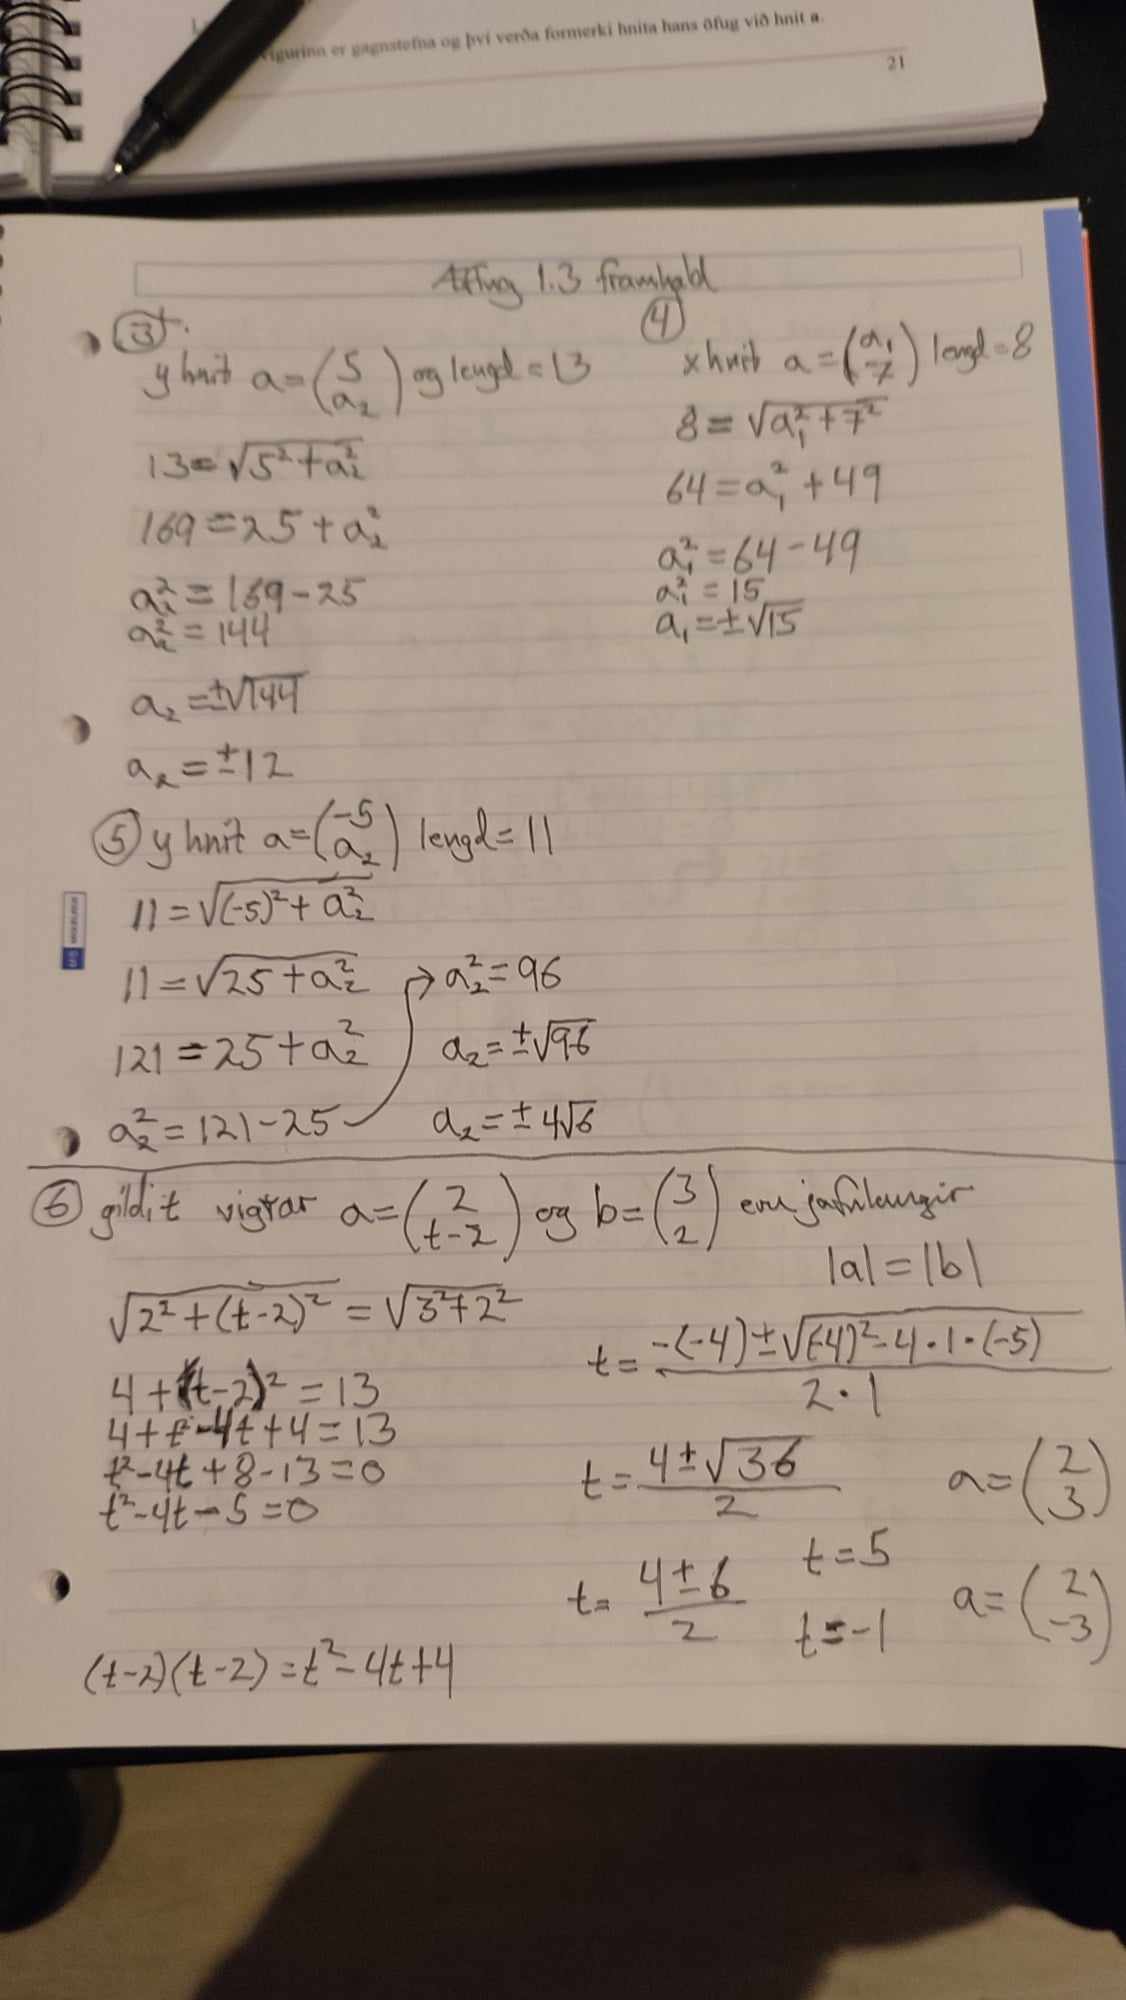 vigurinn er gagnstefna og því verða formerki hnita hans öfug við hnit a.
21
Æfing 1.3 framhald
③ t.
y hnit a = (5 a₂) og lengd = 13
13 = √5² + a₂²
169 = 25 + a₂²
a₂² = 169 - 25
a₂² = 144
a₂ = ±√144
a₂ = ±12
④
x hnit a = (a₁ 7) lengd = 8
8 = √a₁² + 7²
64 = a₁² + 49
a₁² = 64 - 49
a₁² = 15
a₁ = ±√15
⑤ y hnit a = (-5 a₂) lengd = 11
11 = √(-5)² + a₂²
11 = √25 + a₂²
121 = 25 + a₂²
a₂² = 121 - 25
→ a₂² = 96
a₂ = ±√96
a₂ = ±4√6
⑥ gildi t vigrar a = (2 t-2) og b = (3 2) eru jafnlangir
|a| = |b|
√2² + (t-2)² = √3² + 2²
4 + (t-2)² = 13
4 + t² - 4t + 4 = 13
t² - 4t + 8 - 13 = 0
t² - 4t - 5 = 0
(t-2)(t-2) = t² - 4t + 4
t = -(-4) ± √(-4)² - 4 · 1 · (-5) / 2 · 1
t = 4 ± √36 / 2
t = 4 ± 6 / 2
t = 5
t = -1
a = (2 3)
a = (2 -3)